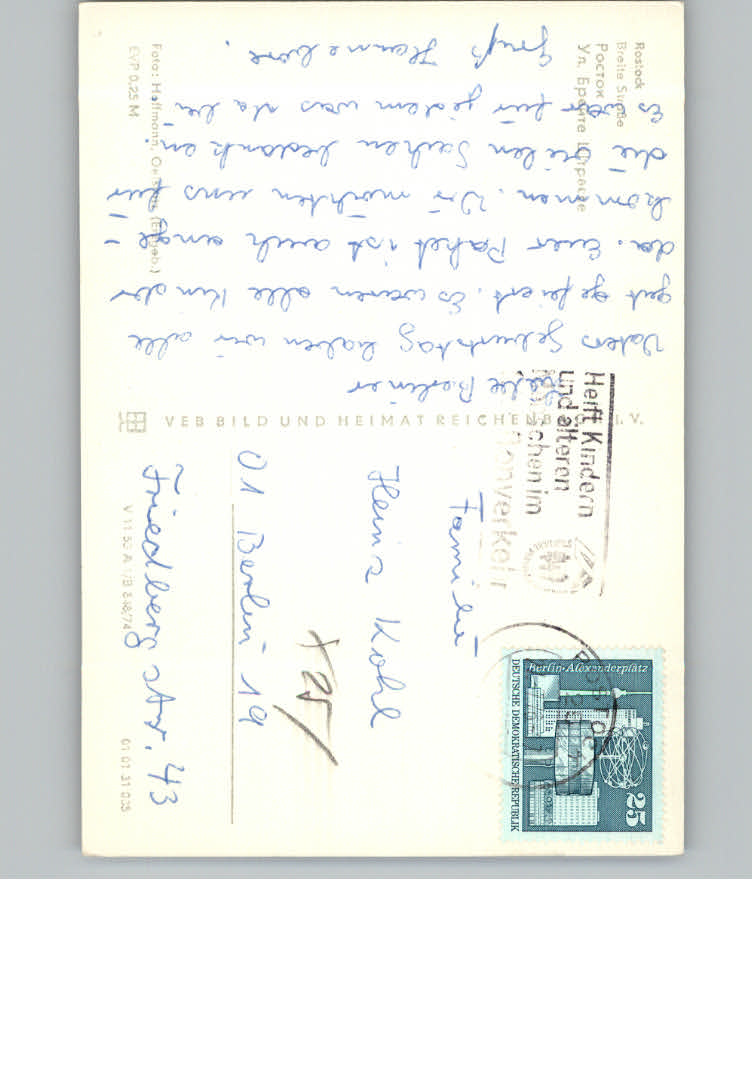 Rostock
Breite Straße
Росток
Ул. Брейте Штрассе
Liebe Berliner
Vaters Geburtstag haben wir alle
gut gefeiert. Es waren alle Kinder
da. Euer Paket ist auch ange-
kommen. Wir möchten uns für
die vielen Sachen bedanken.
Es war für jedem was dabei
Gruß Hannelore.
Foto: Hoffmann,
EVP 0,25 M
VEB BILD UND HEIMAT REICHENBACH I. V.
Helft Kindern
und älteren
Menschen im
Straßenverkehr
Berlin-Alexanderplatz
DEUTSCHE DEMOKRATISCHE REPUBLIK
25
ROSTOCK
Familie
Heinz Kohl
X 25
01 Berlin 19
Friedbergstr. 43
V 11 50 A 1/B 848/74
01 01 31 035